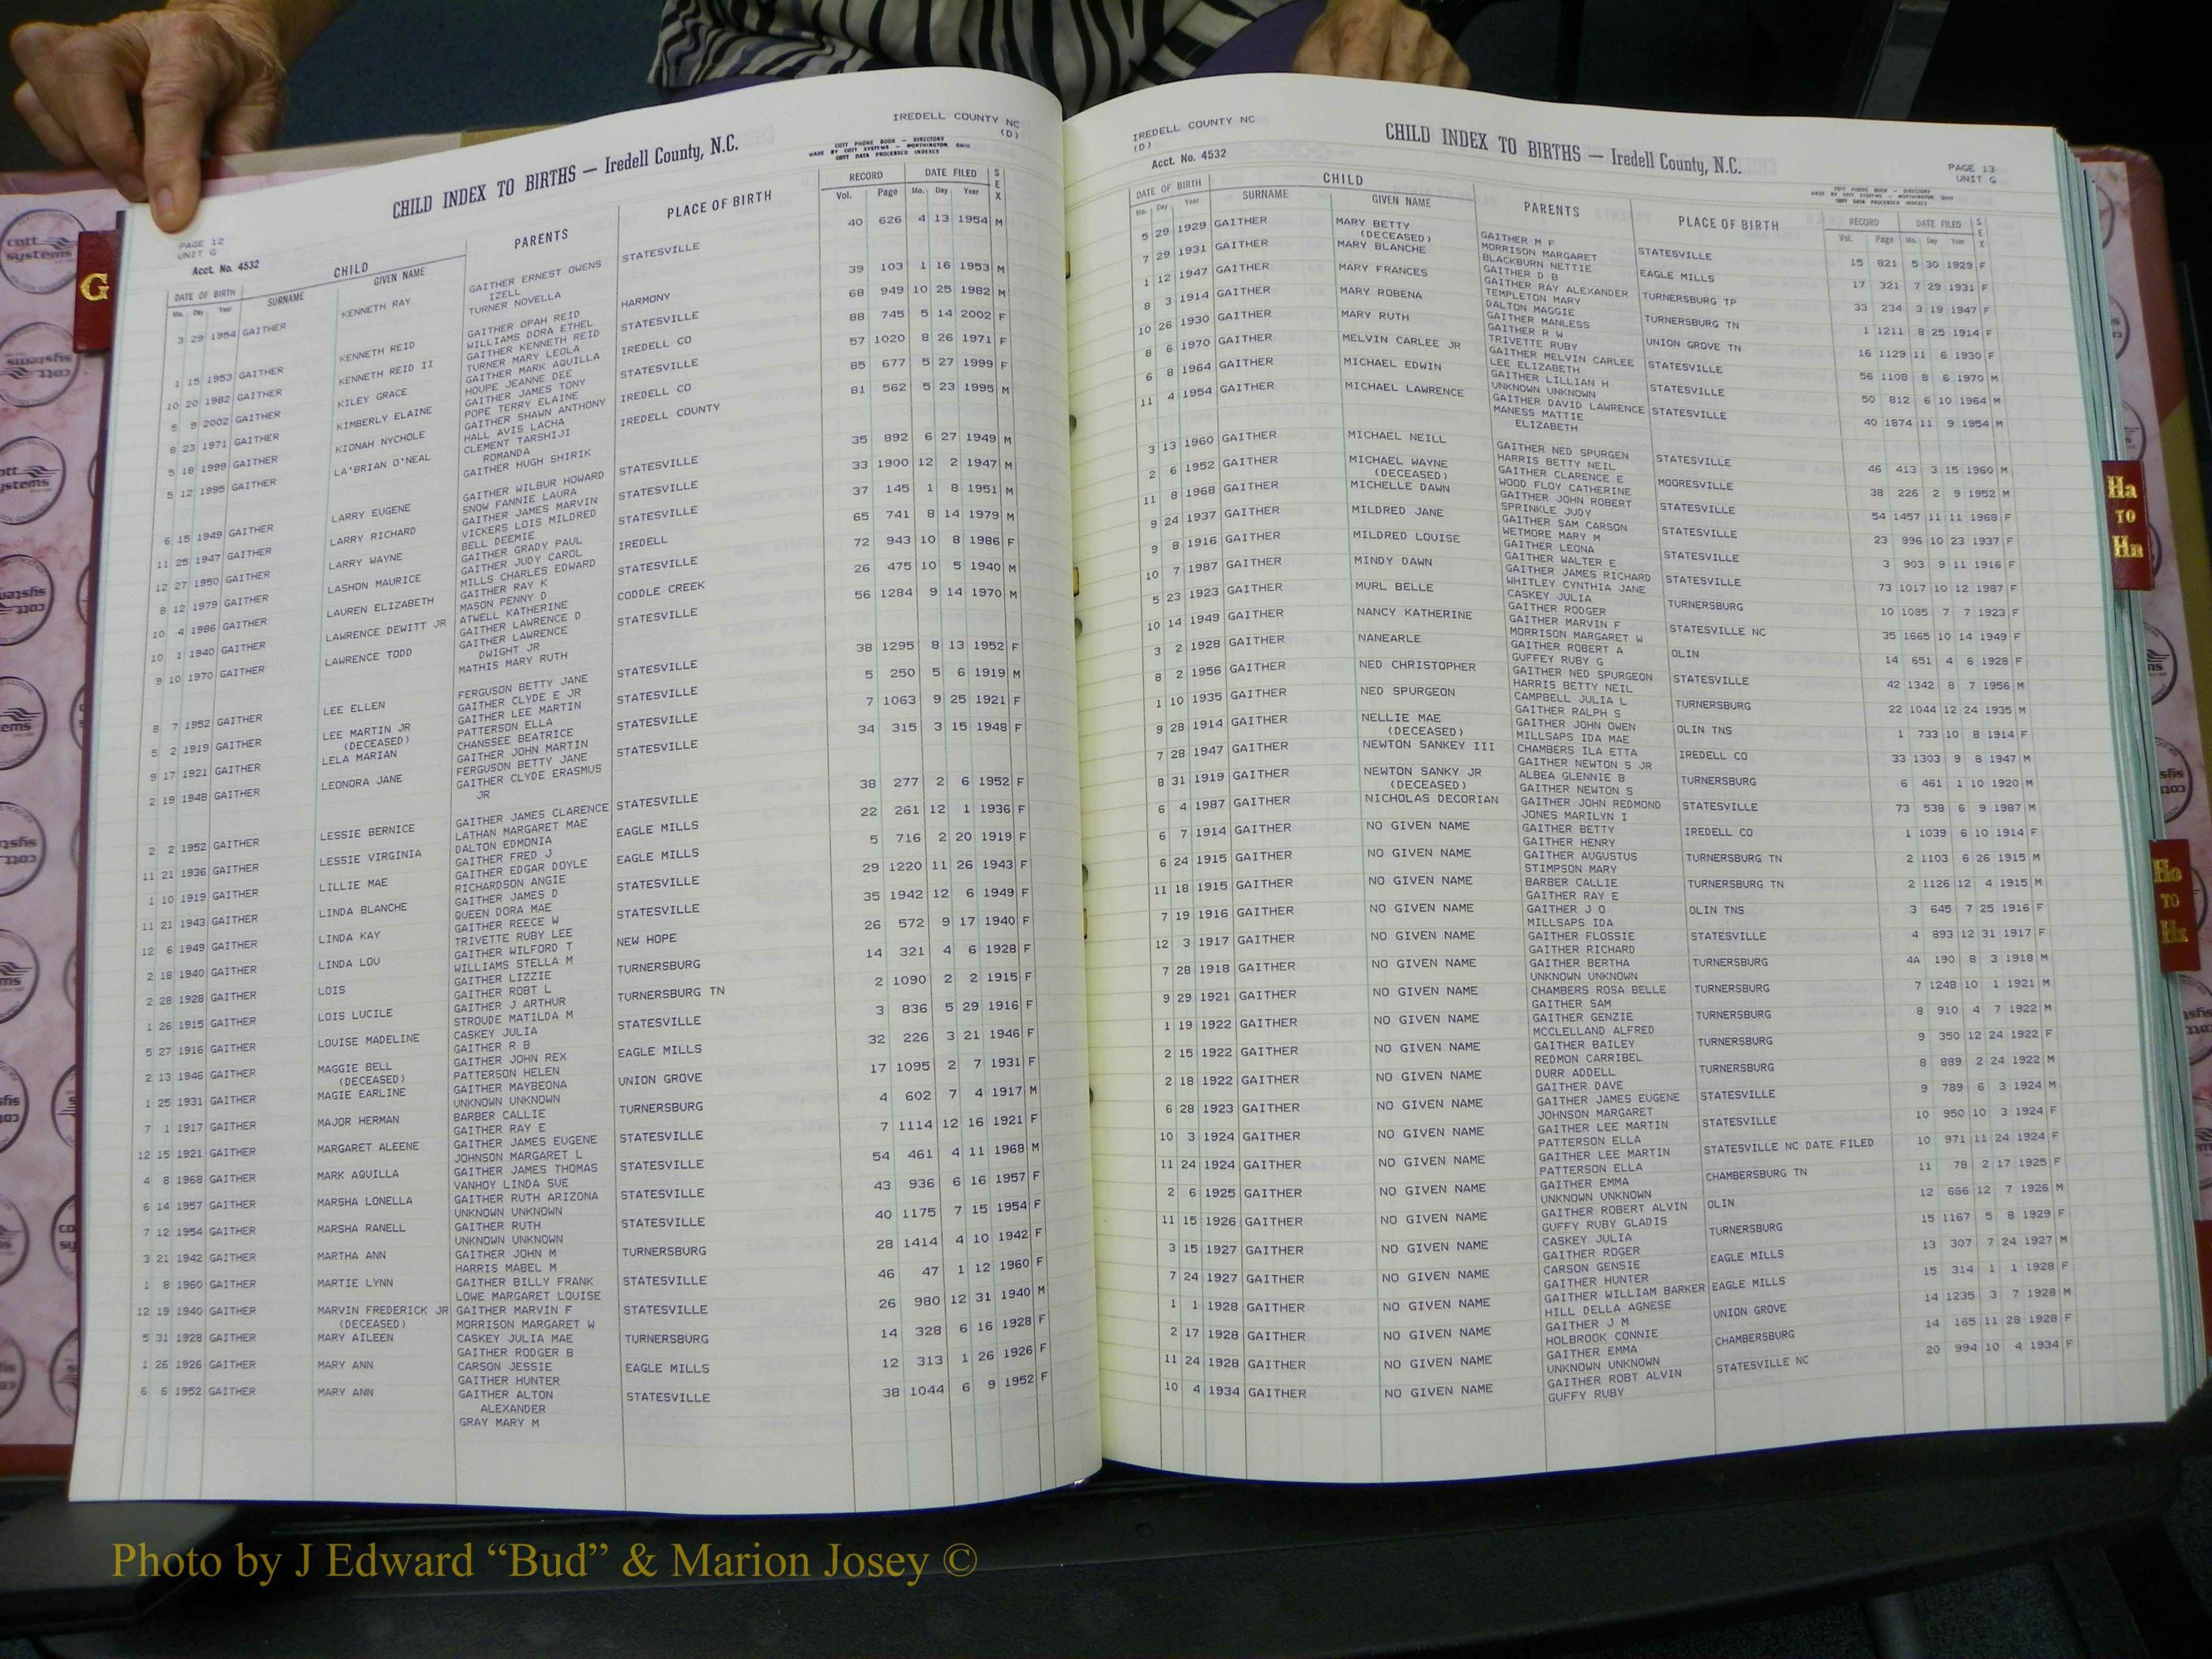 IREDELL COUNTY NC
(D)
CHILD INDEX TO BIRTHS — Iredell County, N.C.
COTT PHONE BOOK — DIRECTORY
MADE BY COTT SYSTEMS — WORTHINGTON, OHIO
COTT DATA PROCESSED INDEXES
PAGE 12
UNIT G
Acct. No. 4532
DATE OF BIRTH CHILD PARENTS PLACE OF BIRTH RECORD DATE FILED SEX
Mo. Day Year SURNAME GIVEN NAME Vol. Page Mo. Day Year
3 29 1954 GAITHER KENNETH RAY GAITHER ERNEST OWENS STATESVILLE 40 626 4 13 1954 M
IZELL
TURNER NOVELLA
1 15 1953 GAITHER KENNETH REID GAITHER OPAH REID HARMONY 39 103 1 16 1953 M
WILLIAMS DORA ETHEL
10 20 1982 GAITHER KENNETH REID II GAITHER KENNETH REID STATESVILLE 68 949 10 25 1982 M
TURNER MARY LEOLA
5 9 2002 GAITHER KILEY GRACE GAITHER MARK AQUILLA IREDELL CO 88 745 5 14 2002 F
HOUPE JEANNE DEE
8 23 1971 GAITHER KIMBERLY ELAINE GAITHER JAMES TONY STATESVILLE 57 1020 8 26 1971 F
POPE TERRY ELAINE
5 18 1999 GAITHER KIONAH NYCHOLE GAITHER SHAWN ANTHONY IREDELL CO 85 677 5 27 1999 F
HALL AVIS LACHA
5 12 1995 GAITHER LA'BRIAN O'NEAL CLEMENT TARSHIJI IREDELL COUNTY 81 562 5 23 1995 M
ROMANDA
GAITHER HUGH SHIRIK
6 15 1949 GAITHER LARRY EUGENE GAITHER WILBUR HOWARD STATESVILLE 35 892 6 27 1949 M
SNOW FANNIE LAURA
11 25 1947 GAITHER LARRY RICHARD GAITHER JAMES MARVIN STATESVILLE 33 1900 12 2 1947 M
VICKERS LOIS MILDRED
12 27 1950 GAITHER LARRY WAYNE BELL DEEMIE STATESVILLE 37 145 1 8 1951 M
GAITHER GRADY PAUL
8 12 1979 GAITHER LASHON MAURICE GAITHER JUDY CAROL IREDELL 65 741 8 14 1979 M
MILLS CHARLES EDWARD
10 4 1986 GAITHER LAUREN ELIZABETH GAITHER RAY K STATESVILLE 72 943 10 8 1986 F
MASON PENNY D
10 1 1940 GAITHER LAWRENCE DEWITT JR ATWELL KATHERINE CODDLE CREEK 26 475 10 5 1940 M
GAITHER LAWRENCE D
9 10 1970 GAITHER LAWRENCE TODD GAITHER LAWRENCE STATESVILLE 56 1284 9 14 1970 M
DWIGHT JR
MATHIS MARY RUTH
8 7 1952 GAITHER LEE ELLEN FERGUSON BETTY JANE STATESVILLE 38 1295 8 13 1952 F
GAITHER CLYDE E JR
5 2 1919 GAITHER LEE MARTIN JR GAITHER LEE MARTIN STATESVILLE 5 250 5 6 1919 M
(DECEASED) PATTERSON ELLA
9 17 1921 GAITHER LELA MARIAN CHANSSEE BEATRICE STATESVILLE 7 1063 9 25 1921 F
GAITHER JOHN MARTIN
2 19 1948 GAITHER LEONORA JANE FERGUSON BETTY JANE STATESVILLE 34 315 3 15 1948 F
GAITHER CLYDE ERASMUS
JR
2 2 1952 GAITHER LESSIE BERNICE GAITHER JAMES CLARENCE STATESVILLE 38 277 2 6 1952 F
LATHAN MARGARET MAE
11 21 1936 GAITHER LESSIE VIRGINIA DALTON EDMONIA EAGLE MILLS 22 261 12 1 1936 F
GAITHER FRED J
1 10 1919 GAITHER LILLIE MAE GAITHER EDGAR DOYLE EAGLE MILLS 5 716 2 20 1919 F
RICHARDSON ANGIE
11 21 1943 GAITHER LINDA BLANCHE GAITHER JAMES D STATESVILLE 29 1220 11 26 1943 F
QUEEN DORA MAE
12 6 1949 GAITHER LINDA KAY GAITHER REECE W STATESVILLE 35 1942 12 6 1949 F
TRIVETTE RUBY LEE
2 18 1940 GAITHER LINDA LOU GAITHER WILFORD T NEW HOPE 26 572 9 17 1940 F
WILLIAMS STELLA M
2 28 1928 GAITHER LOIS GAITHER LIZZIE TURNERSBURG 14 321 4 6 1928 F
GAITHER ROBT L
1 26 1915 GAITHER LOIS LUCILE GAITHER J ARTHUR TURNERSBURG TN 2 1090 2 2 1915 F
STROUDE MATILDA M
5 27 1916 GAITHER LOUISE MADELINE CASKEY JULIA STATESVILLE 3 836 5 29 1916 F
GAITHER R B
2 13 1946 GAITHER MAGGIE BELL GAITHER JOHN REX EAGLE MILLS 32 226 3 21 1946 F
(DECEASED) PATTERSON HELEN
1 25 1931 GAITHER MAGIE EARLINE GAITHER MAYBEONA UNION GROVE 17 1095 2 7 1931 F
UNKNOWN UNKNOWN
7 1 1917 GAITHER MAJOR HERMAN BARBER CALLIE TURNERSBURG 4 602 7 4 1917 M
GAITHER RAY E
12 15 1921 GAITHER MARGARET ALEENE GAITHER JAMES EUGENE STATESVILLE 7 1114 12 16 1921 F
JOHNSON MARGARET L
4 8 1968 GAITHER MARK AQUILLA GAITHER JAMES THOMAS STATESVILLE 54 461 4 11 1968 M
VANHOY LINDA SUE
6 14 1957 GAITHER MARSHA LONELLA GAITHER RUTH ARIZONA STATESVILLE 43 936 6 16 1957 F
UNKNOWN UNKNOWN
7 12 1954 GAITHER MARSHA RANELL GAITHER RUTH STATESVILLE 40 1175 7 15 1954 F
UNKNOWN UNKNOWN
3 21 1942 GAITHER MARTHA ANN GAITHER JOHN M TURNERSBURG 28 1414 4 10 1942 F
HARRIS MABEL M
1 8 1960 GAITHER MARTIE LYNN GAITHER BILLY FRANK STATESVILLE 46 47 1 12 1960 F
LOWE MARGARET LOUISE
12 19 1940 GAITHER MARVIN FREDERICK JR GAITHER MARVIN F STATESVILLE 26 980 12 31 1940 M
(DECEASED) MORRISON MARGARET W
5 31 1928 GAITHER MARY AILEEN CASKEY JULIA MAE TURNERSBURG 14 328 6 16 1928 F
GAITHER RODGER B
1 26 1926 GAITHER MARY ANN CARSON JESSIE EAGLE MILLS 12 313 1 26 1926 F
GAITHER HUNTER
6 6 1952 GAITHER MARY ANN GAITHER ALTON STATESVILLE 38 1044 6 9 1952 F
ALEXANDER
GRAY MARY M
IREDELL COUNTY NC
(D)
Acct. No. 4532
CHILD INDEX TO BIRTHS — Iredell County, N.C.
PAGE 13
UNIT G
COTT PHONE BOOK — DIRECTORY
MADE BY COTT SYSTEMS — WORTHINGTON, OHIO
COTT DATA PROCESSED INDEXES
DATE OF BIRTH CHILD PARENTS PLACE OF BIRTH RECORD DATE FILED SEX
Mo. Day Year SURNAME GIVEN NAME Vol. Page Mo. Day Year
5 29 1929 GAITHER MARY BETTY GAITHER M F STATESVILLE 15 821 5 30 1929 F
(DECEASED) MORRISON MARGARET
7 29 1931 GAITHER MARY BLANCHE BLACKBURN NETTIE EAGLE MILLS 17 321 7 29 1931 F
GAITHER D B
1 12 1947 GAITHER MARY FRANCES GAITHER RAY ALEXANDER TURNERSBURG TP 33 234 3 19 1947 F
TEMPLETON MARY
8 3 1914 GAITHER MARY ROBENA DALTON MAGGIE TURNERSBURG TN 1 1211 8 25 1914 F
GAITHER MANLESS
10 26 1930 GAITHER MARY RUTH GAITHER R W UNION GROVE TN 16 1129 11 6 1930 F
TRIVETTE RUBY
8 6 1970 GAITHER MELVIN CARLEE JR GAITHER MELVIN CARLEE STATESVILLE 56 1108 8 6 1970 M
LEE ELIZABETH
6 8 1964 GAITHER MICHAEL EDWIN GAITHER LILLIAN H STATESVILLE 50 812 6 10 1964 M
UNKNOWN UNKNOWN
11 4 1954 GAITHER MICHAEL LAWRENCE GAITHER DAVID LAWRENCE STATESVILLE 40 1874 11 9 1954 M
MANESS MATTIE
ELIZABETH
3 13 1960 GAITHER MICHAEL NEILL GAITHER NED SPURGEN STATESVILLE 46 413 3 15 1960 M
HARRIS BETTY NEIL
2 6 1952 GAITHER MICHAEL WAYNE GAITHER CLARENCE E MOORESVILLE 38 226 2 9 1952 M
(DECEASED) WOOD FLOY CATHERINE
11 8 1968 GAITHER MICHELLE DAWN GAITHER JOHN ROBERT STATESVILLE 54 1457 11 11 1968 F
SPRINKLE JUDY
9 24 1937 GAITHER MILDRED JANE GAITHER SAM CARSON STATESVILLE 23 996 10 23 1937 F
WETMORE MARY M
9 8 1916 GAITHER MILDRED LOUISE GAITHER LEONA STATESVILLE 3 903 9 11 1916 F
GAITHER WALTER E
10 7 1987 GAITHER MINDY DAWN GAITHER JAMES RICHARD STATESVILLE 73 1017 10 12 1987 F
WHITLEY CYNTHIA JANE
5 23 1923 GAITHER MURL BELLE CASKEY JULIA TURNERSBURG 10 1085 7 7 1923 F
GAITHER RODGER
10 14 1949 GAITHER NANCY KATHERINE GAITHER MARVIN F STATESVILLE NC 35 1665 10 14 1949 F
MORRISON MARGARET W
3 2 1928 GAITHER NANEARLE GAITHER ROBERT A OLIN 14 651 4 6 1928 F
GUFFEY RUBY G
8 2 1956 GAITHER NED CHRISTOPHER GAITHER NED SPURGEON STATESVILLE 42 1342 8 7 1956 M
HARRIS BETTY NEIL
1 10 1935 GAITHER NED SPURGEON CAMPBELL JULIA L TURNERSBURG 22 1044 12 24 1935 M
GAITHER RALPH S
9 28 1914 GAITHER NELLIE MAE GAITHER JOHN OWEN OLIN TNS 1 733 10 8 1914 F
(DECEASED) MILLSAPS IDA MAE
7 28 1947 GAITHER NEWTON SANKEY III CHAMBERS ILA ETTA IREDELL CO 33 1303 9 8 1947 M
GAITHER NEWTON S JR
8 31 1919 GAITHER NEWTON SANKY JR ALBEA GLENNIE B TURNERSBURG 6 461 1 10 1920 M
(DECEASED) GAITHER NEWTON S
6 4 1987 GAITHER NICHOLAS DECORIAN GAITHER JOHN REDMOND STATESVILLE 73 538 6 9 1987 M
JONES MARILYN I
6 7 1914 GAITHER NO GIVEN NAME GAITHER BETTY IREDELL CO 1 1039 6 10 1914 F
GAITHER HENRY
6 24 1915 GAITHER NO GIVEN NAME GAITHER AUGUSTUS TURNERSBURG TN 2 1103 6 26 1915 M
STIMPSON MARY
11 18 1915 GAITHER NO GIVEN NAME BARBER CALLIE TURNERSBURG TN 2 1126 12 4 1915 M
GAITHER RAY E
7 19 1916 GAITHER NO GIVEN NAME GAITHER J O OLIN TNS 3 645 7 25 1916 F
MILLSAPS IDA
12 3 1917 GAITHER NO GIVEN NAME GAITHER FLOSSIE STATESVILLE 4 893 12 31 1917 F
GAITHER RICHARD
7 28 1918 GAITHER NO GIVEN NAME GAITHER BERTHA TURNERSBURG 4A 190 8 3 1918 M
UNKNOWN UNKNOWN
9 29 1921 GAITHER NO GIVEN NAME CHAMBERS ROSA BELLE TURNERSBURG 7 1248 10 1 1921 M
GAITHER SAM
1 19 1922 GAITHER NO GIVEN NAME GAITHER GENZIE TURNERSBURG 8 910 4 7 1922 M
MCCLELLAND ALFRED
2 15 1922 GAITHER NO GIVEN NAME GAITHER BAILEY TURNERSBURG 9 350 12 24 1922 F
REDMON CARRIBEL
2 18 1922 GAITHER NO GIVEN NAME DURR ADDELL TURNERSBURG 8 889 2 24 1922 M
GAITHER DAVE
6 28 1923 GAITHER NO GIVEN NAME GAITHER JAMES EUGENE STATESVILLE 9 789 6 3 1924 M
JOHNSON MARGARET
10 3 1924 GAITHER NO GIVEN NAME GAITHER LEE MARTIN STATESVILLE 10 950 10 3 1924 F
PATTERSON ELLA
11 24 1924 GAITHER NO GIVEN NAME GAITHER LEE MARTIN STATESVILLE NC DATE FILED 10 971 11 24 1924 F
PATTERSON ELLA
2 6 1925 GAITHER NO GIVEN NAME GAITHER EMMA CHAMBERSBURG TN 11 78 2 17 1925 F
UNKNOWN UNKNOWN
11 15 1926 GAITHER NO GIVEN NAME GAITHER ROBERT ALVIN OLIN 12 666 12 7 1926 M
GUFFY RUBY GLADIS
3 15 1927 GAITHER NO GIVEN NAME CASKEY JULIA TURNERSBURG 15 1167 5 8 1929 F
GAITHER ROGER
7 24 1927 GAITHER NO GIVEN NAME CARSON GENSIE EAGLE MILLS 13 307 7 24 1927 M
GAITHER HUNTER
1 1 1928 GAITHER NO GIVEN NAME GAITHER WILLIAM BARKER EAGLE MILLS 15 314 1 1 1928 F
HILL DELLA AGNESE
2 17 1928 GAITHER NO GIVEN NAME GAITHER J M UNION GROVE 14 1235 3 7 1928 M
HOLBROOK CONNIE
11 24 1928 GAITHER NO GIVEN NAME GAITHER EMMA CHAMBERSBURG 14 165 11 28 1928 F
UNKNOWN UNKNOWN
10 4 1934 GAITHER NO GIVEN NAME GAITHER ROBT ALVIN STATESVILLE NC 20 994 10 4 1934 F
GUFFY RUBY
G
Ha
TO
Hn
Ho
TO
Hz
cott
systems
Photo by J Edward “Bud” & Marion Josey ©